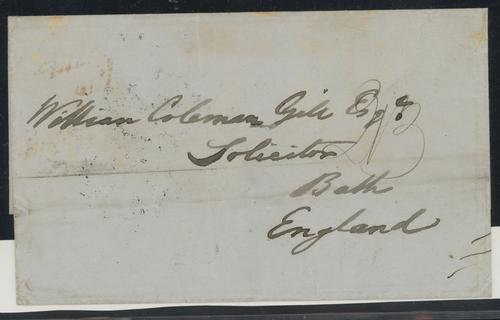 William Coleman Gill Esqr
Solicitor
Bath
England